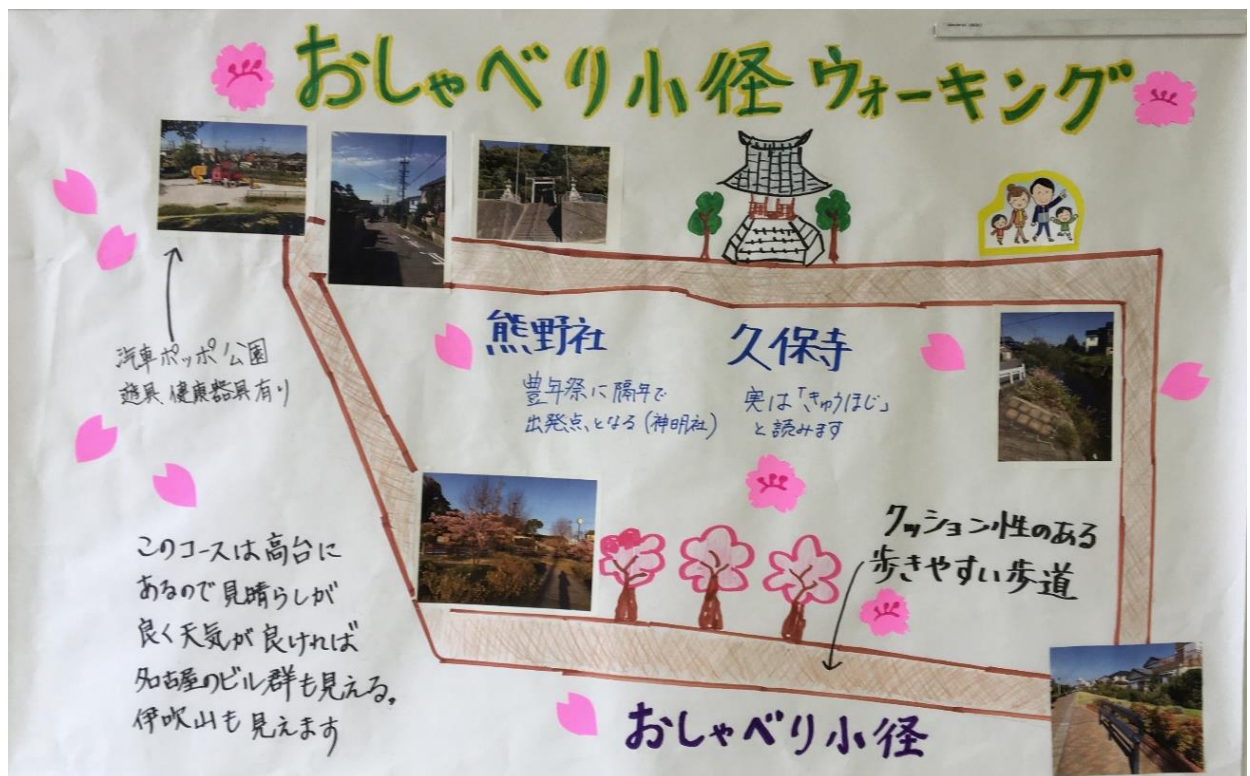 おしゃべり小径 ウォーキング
汽車ポッポ公園
遊具、健康器具有り
熊野社
豊年祭に隔年で
出発点となる(神明社)
久保寺
実は「きゅうほじ」
と読みます
クッション性のある
歩きやすい歩道
このコースは高台に
あるので見晴らしが
良く天気が良ければ
名古屋のビル群も見える。
伊吹山も見えます
おしゃべり小径